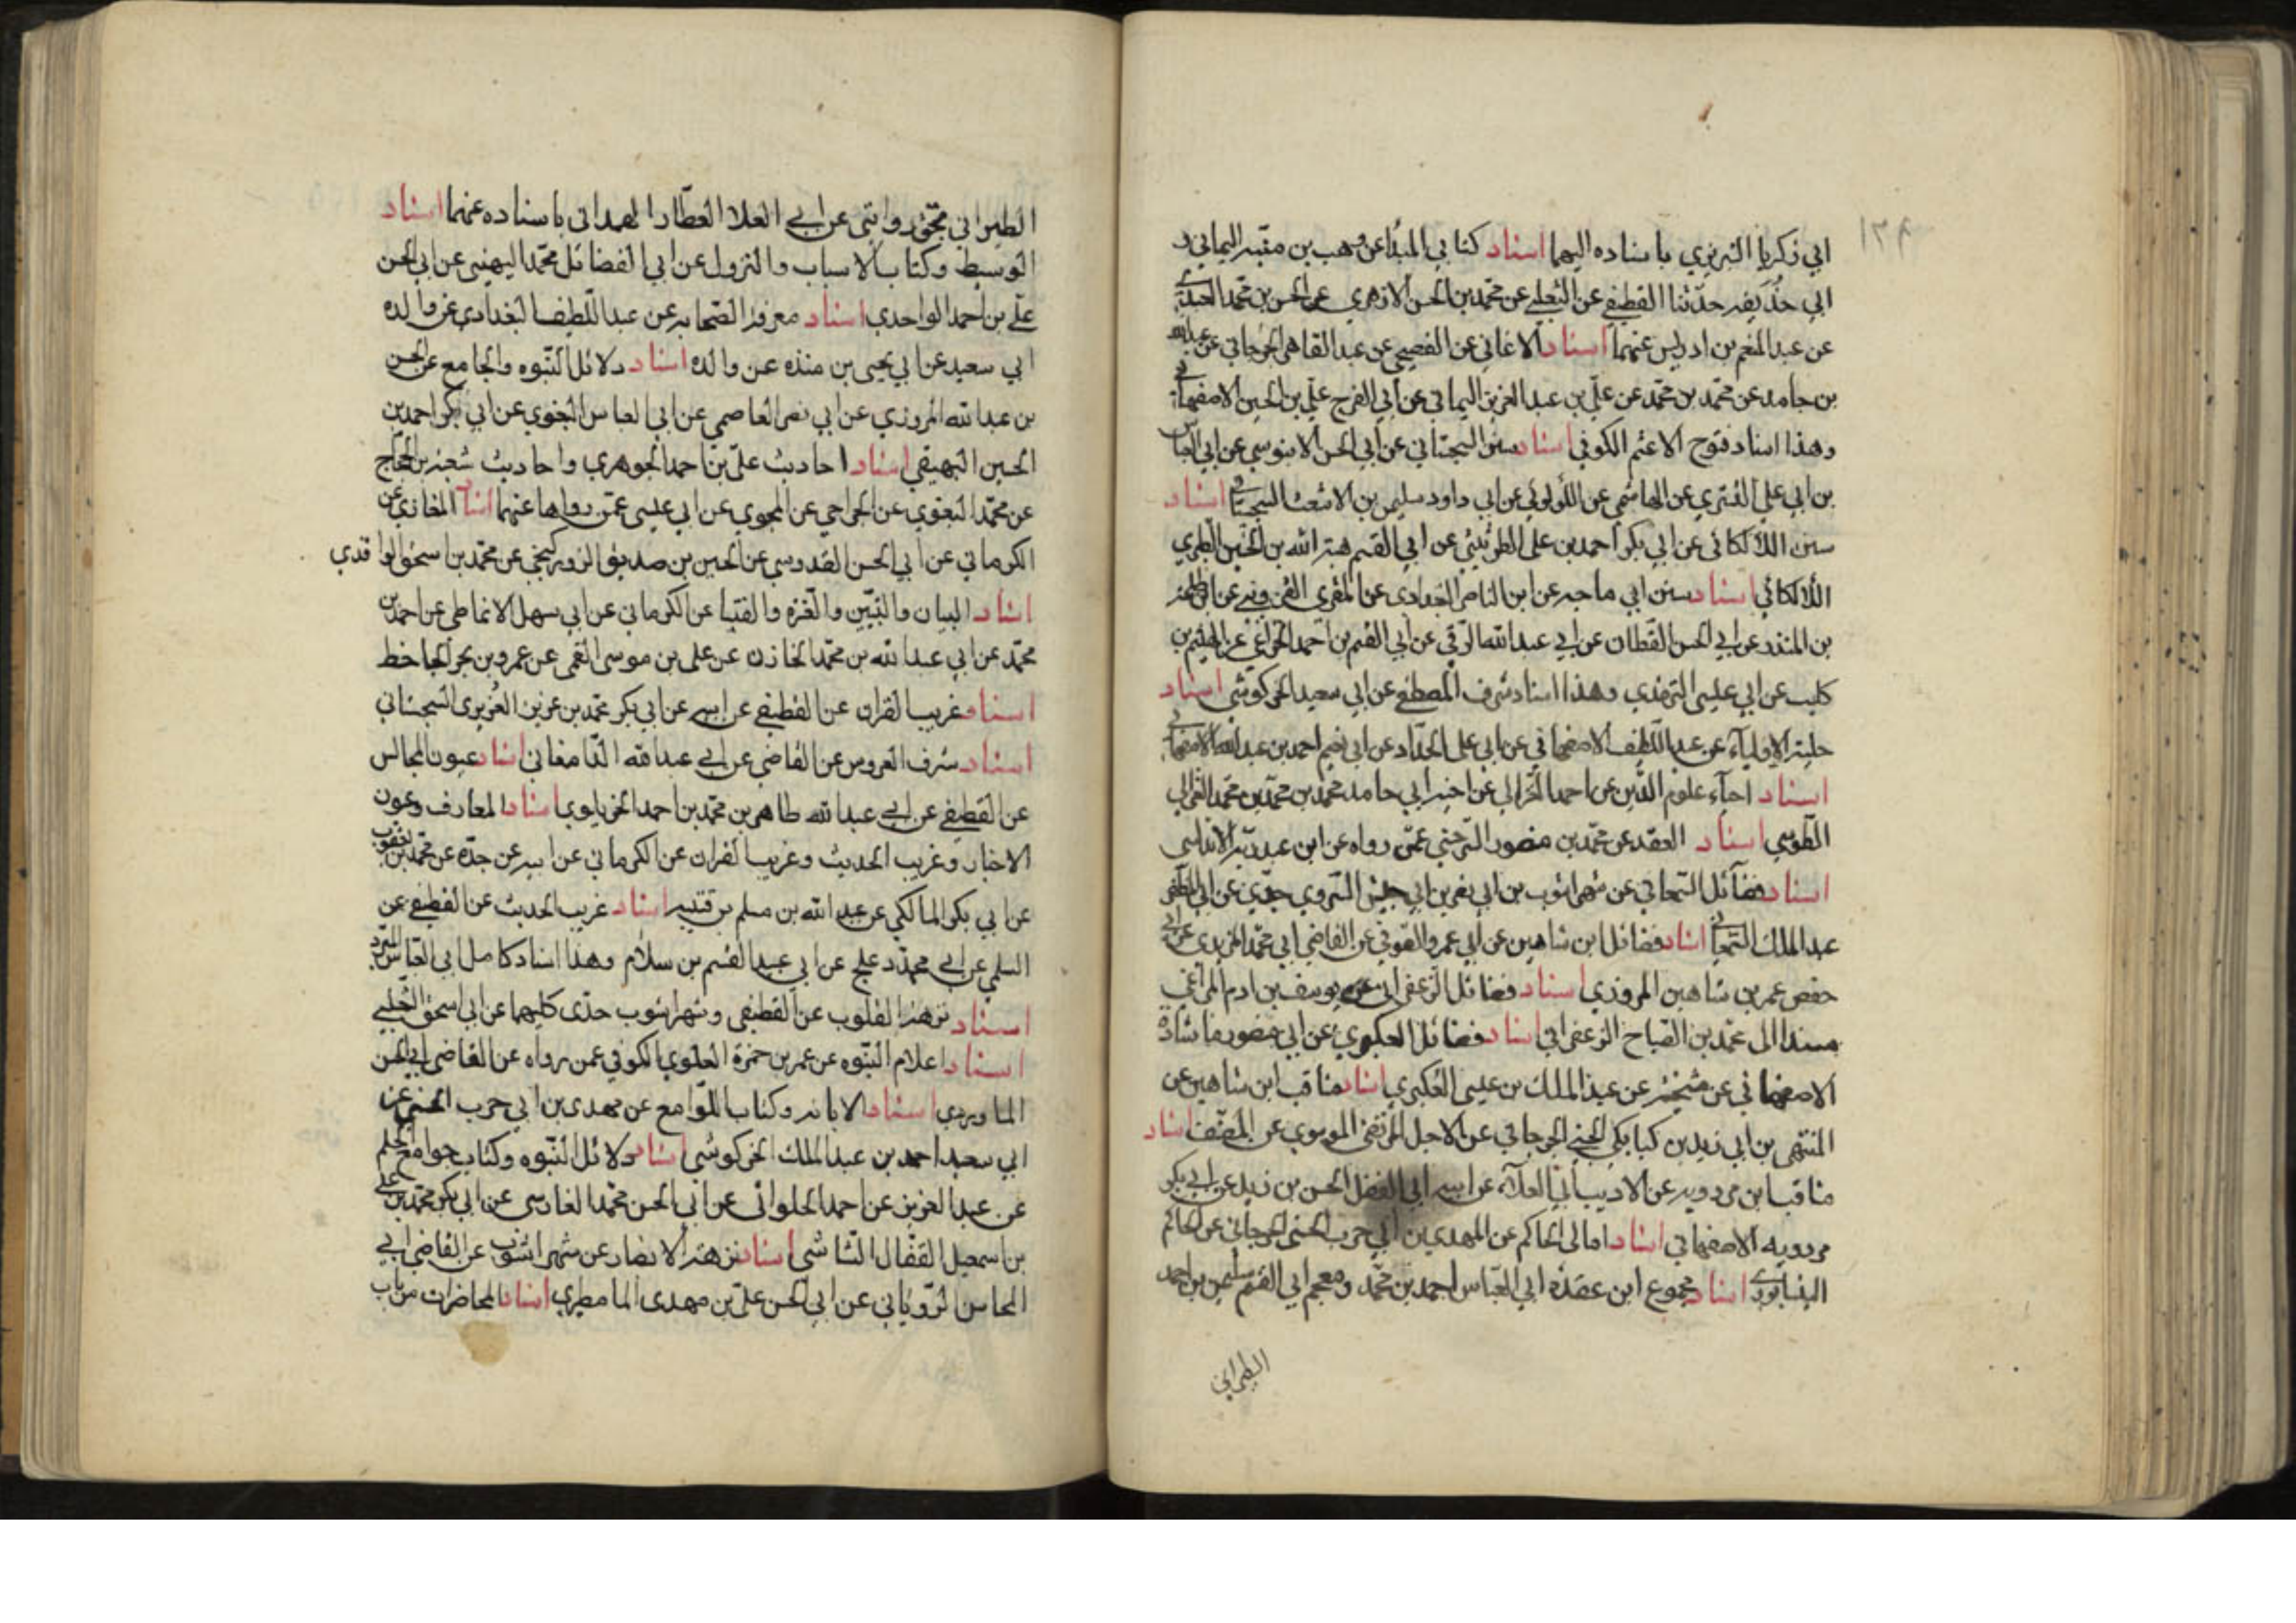 ١٢٩
ابي زكريا التبريزي باسناده اليهما اسناد كتابي المبتدا عن وهب بن منبه اليماني و
ابي حذيفه حدثنا القطيفي عن الثعلبي عن محمد بن الحسن الازهري عن الحسن بن محمد العبدي
عن عبد المنعم بن ادريس عنهما اسناد الاغاني عن الفصيحي عن عبد القاهر الجرجاني عن عبد الله
بن حامد عن محمد بن محمد عن علي بن عبد العزيز اليماني عن ابي الفرج علي بن الحسين الاصفهاني
وهذا اسناد فتوح الاعثم الكوفي اسناد سنن السجستاني عن ابي الحسن الابنوسي عن ابي العباس
بن ابي علي التستري عن الهاشمي عن اللؤلوئي عن ابي داود سليمن بن الاشعث السجستاني اسناد
سنن اللالكائي عن ابي بكر احمد بن علي الطرثيثي عن ابي القسم هبة الله بن الحسين الطبري
اللالكائي اسناد سنن ابي ماجه عن ابن الناصر البغدادي عن المقري القزويني عن ابن طلحة
بن المنذر عن ابي الحسن القطان عن ابي عبد الله الرقي عن ابي القسم بن احمد الخزاعي عن الهيثم بن
كليب عن ابي عيسى الترمذي وهذا اسناد شرف المصطفى عن ابي سعيد الخركوشي اسناد
حلية الاولياء عن عبد اللطيف الاصفهاني عن ابي علي الحداد عن ابي نعيم احمد بن عبد الله الاصفهاني
اسناد احياء علوم الدين عن احمد الغزالي عن اخيه ابي حامد محمد بن محمد بن محمد الغزالي
الطوسي اسناد العقد عن محمد بن منصور السرخسي عمن رواه عن ابن عبد ربه الاندلسي
اسناد فضائل السمعاني عن شهراشوب بن ابي نصر بن ابي جيش السروي جدي عن ابي المظفر
عبد الملك السمعاني اسناد فضائل ابن شاهين عن ابي عمرو الصوفي عن القاضي ابي محمد المزيدي عن ابي
حفص عمر بن شاهين المروزي اسناد فضائل الزعفراني عن يوسف بن ادم المراغي
مسندا الى محمد بن الصباح الزعفراني اسناد فضائل العكبري عن ابي منصور ماشاده
الاصفهاني عن مشيخته عن عبد الملك بن عيسى العكبري اسناد مناقب ابن شاهين عن
المنتهى بن ابي زيد بن كيابكي الحسني الجرجاني عن الاجل المرتضى الموسوي عن المصنف اسناد
مناقب ابن مردويه عن الاديب ابي العلاء عن ابيه ابي الفضل الحسن بن زيد عن ابي بكر
مردويه الاصفهاني اسناد امالى الحاكم عن المهدي بن ابي حرب الحسني الجرجاني عن الحاكم
النيسابوري اسناد مجموع ابن عقدة ابي العباس احمد بن محمد ومعجم ابي القسم سليمن بن احمد
الطبراني
الطبراني بحق روايتي عن ابي العلا العطار الهمداني باسناده عنهما اسناد
الوسيط وكتاب الاسباب والنزول عن ابي الفضائل محمد اليهيني عن ابي الحسن
علي بن احمد الواحدي اسناد معرفة الصحابه عن عبد اللطيف البغدادي عن والده
ابي سعيد عن ابي يحيى بن منذه عن والده اسناد دلائل النبوه والجامع عن الحسن
بن عبد الله المروزي عن ابي نصر العاصمي عن ابي العباس البغوي عن ابي بكر احمد بن
الحسين البهيقي اسناد احاديث علي بن احمد الجوهري واحاديث شعبة بن الحجاج
عن محمد البغوي عن الجراحي عن المحبوبي عن ابي عيسى عمن رواها عنهما اسناد المغازي عن
الكرماني عن ابي الحسن القدوسي عن الحسين بن صديق الزورعنجي عن محمد بن اسحق الواقدي
اسناد البيان والتبيين والغرة والفتيا عن الكرماني عن ابي سهل الانماطي عن احمد بن
محمد عن ابي عبد الله بن محمد الخازن عن علي بن موسى القمي عن عمرو بن بحر الجاحظ
اسناد غريب القران عن القطيفي عن ابيه عن ابي بكر محمد بن عزيز العزيزي السجستاني
اسناد شرف العروس عن القاضي عن ابي عبد الله الدامغاني اسناد عيون المجالس
عن القطيفي عن ابي عبد الله طاهر بن محمد بن احمد الخريلوي اسناد المعارف وعيون
الاخبار وغريب الحديث وغريب القران عن الكرماني عن ابيه عن جده عن محمد بن يعقوب
عن ابي بكر المالكي عن عبد الله بن مسلم بن قتيبه اسناد غريب الحديث عن القطيفي عن
السلمي عن ابي محمد دعلج عن ابي عبيد القسم بن سلام وهذا اسناد كامل ابي العباس المبرد
اسناد نزهة القلوب عن القطيفي وشهراشوب جدي كليهما عن ابي اسحق الثعلبي
اسناد اعلام النبوه عن عمر بن حمزة العلوي الكوفي عمن رواه عن القاضي ابي الحسن
الماوردي اسناد الابانه وكتاب اللوامع عن مهدي بن ابي حرب الحسني عن
ابي سعيد احمد بن عبد الملك الخركوشي اسناد دلائل النبوه وكتاب جوامع الحلم
عن عبد العزيز عن احمد الحلواني عن ابي الحسن محمد الفارسي عن ابي بكر محمد بن علي
بن اسمعيل القفال الشاشي اسناد نزهة الابصار عن شهراشوب عن القاضي ابي
المحاسن الروياني عن ابي الحسن علي بن مهدي المامطيري اسناد المحاضرات من باب